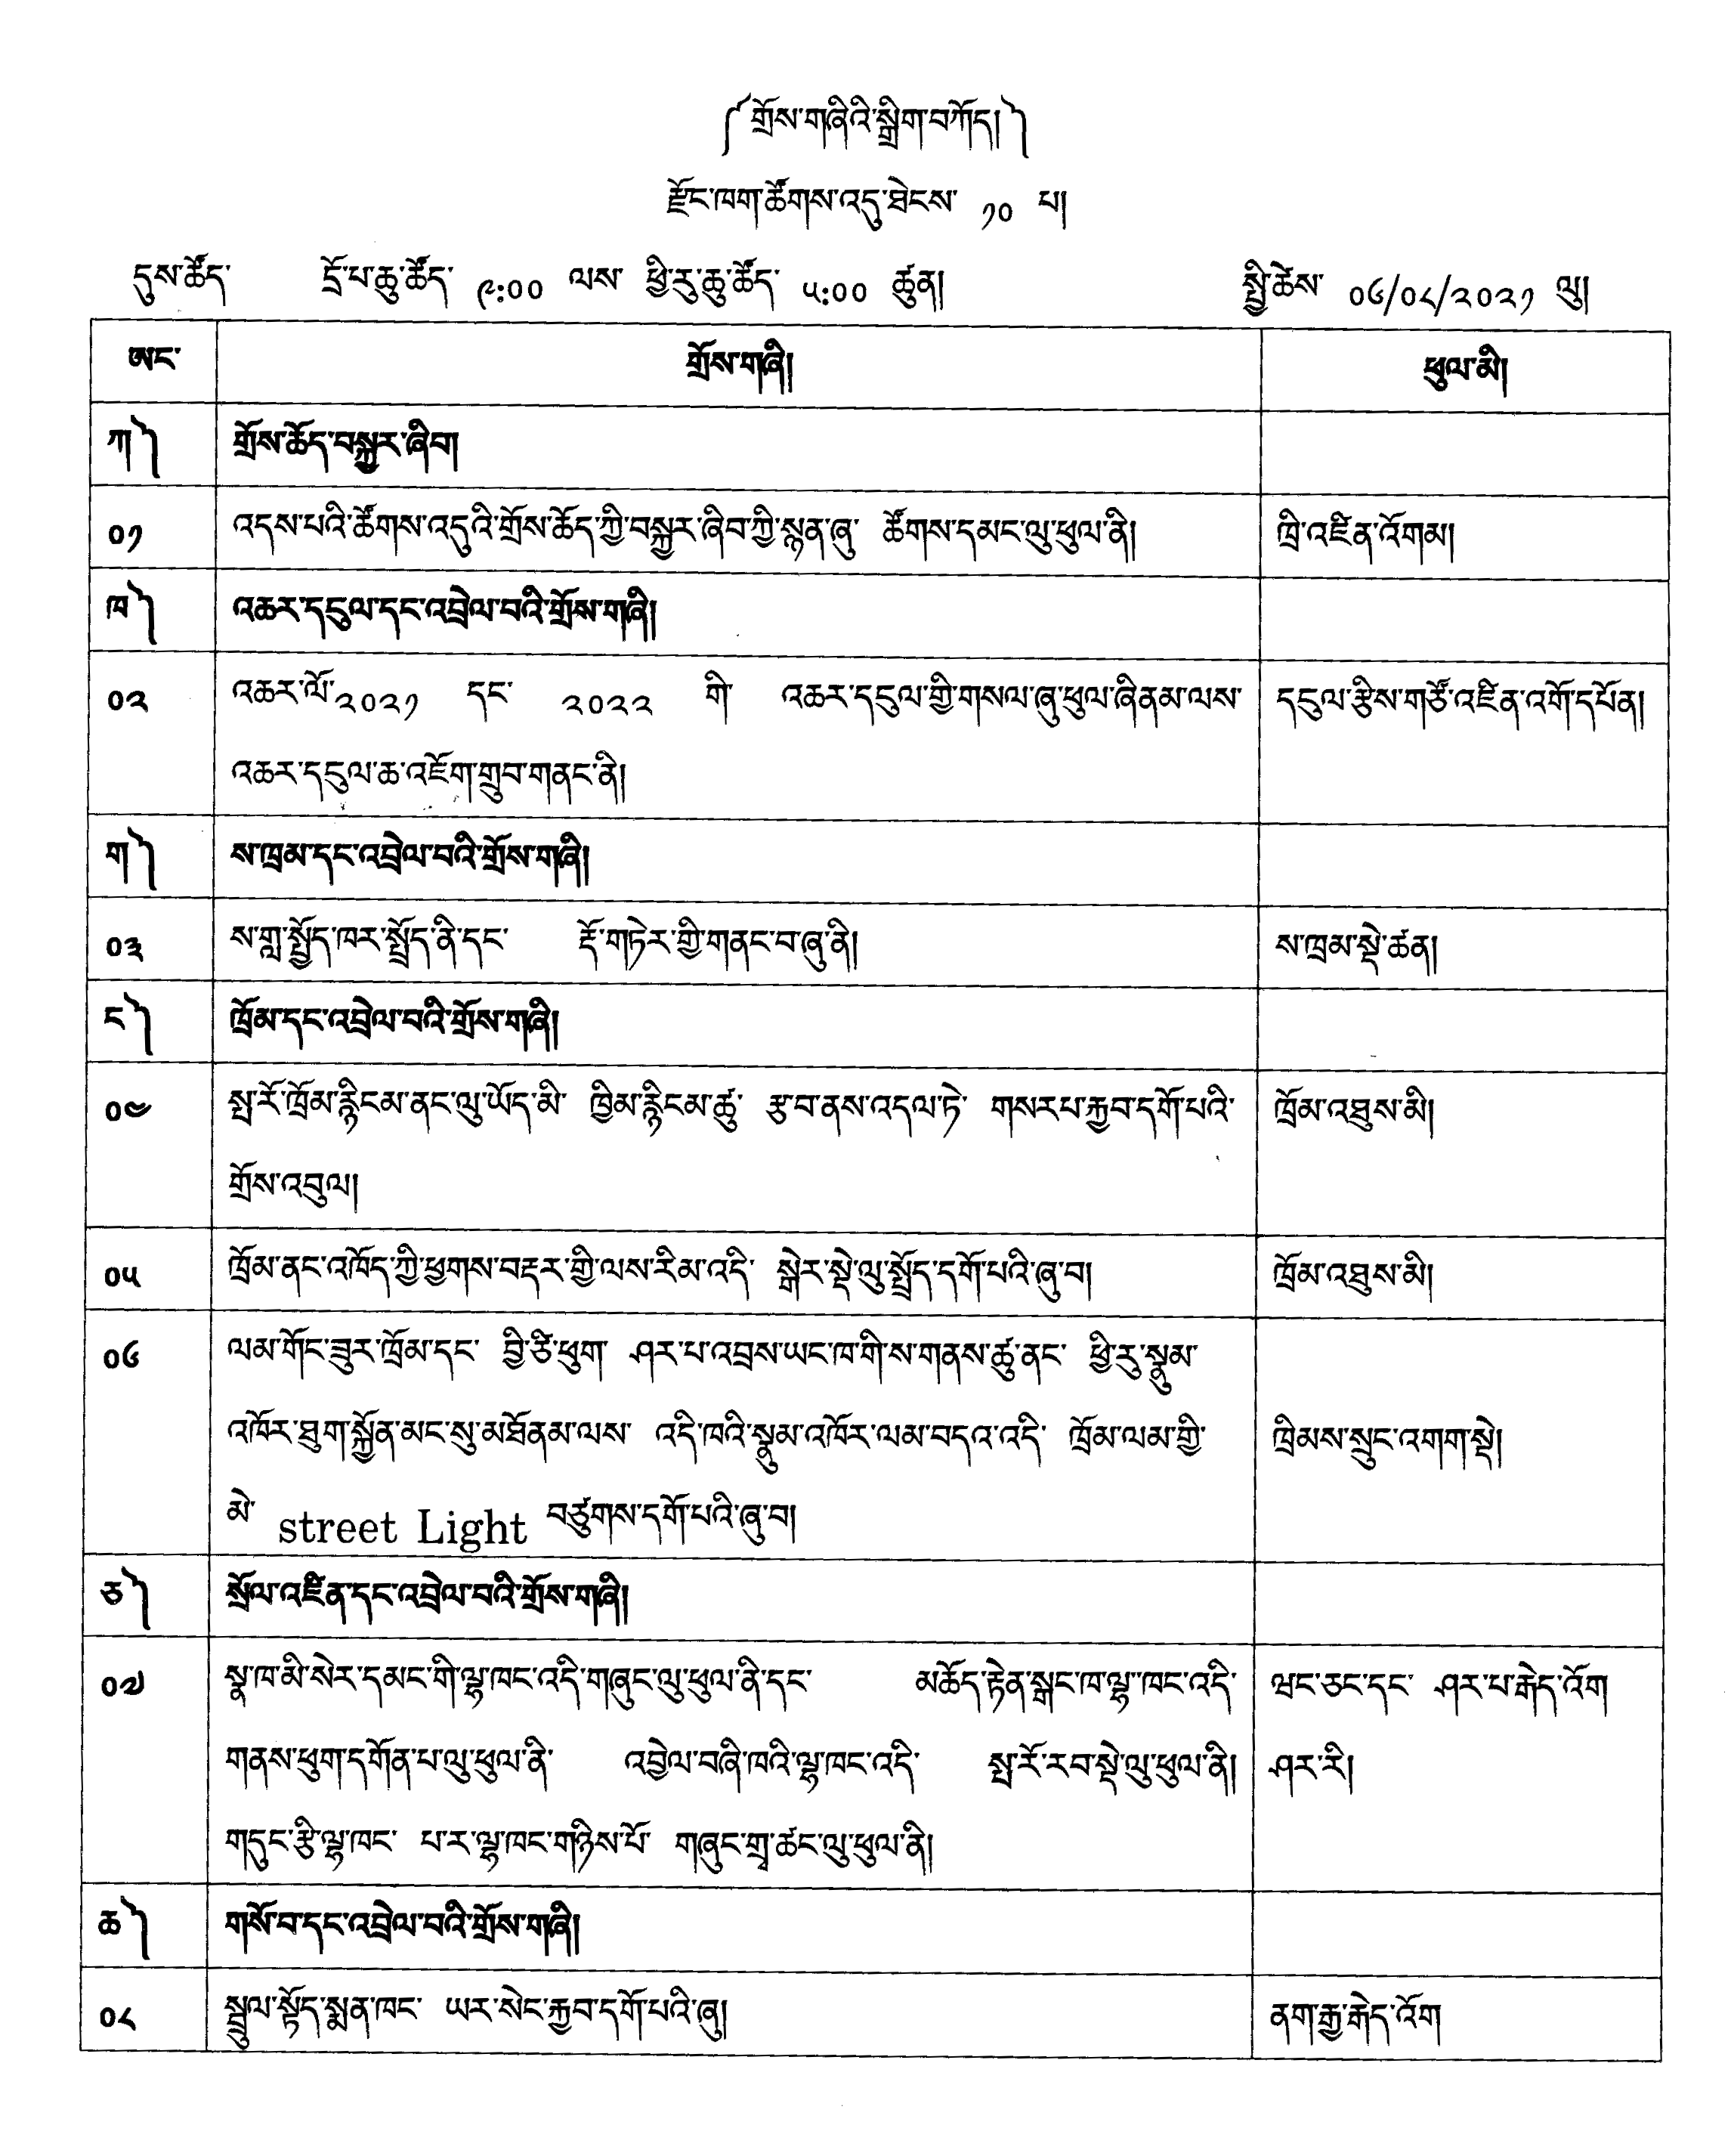 ༼གྲོས་གཞིའི་སྒྲིག་བཀོད།༽
རྫོང་ཁག་ཚོགས་འདུ་ཐེངས་ ༡༠ པ།
དུས་ཚོད་ དྲོ་པ་ཆུ་ཚོད་ ༩:༠༠ ལས་ ཕྱི་རུ་ཆུ་ཚོད་ ༥:༠༠ ཚུན། སྤྱི་ཚེས་ ༠༦/༠༨/༢༠༢༡ ལུ།
ཨང་ གྲོས་གཞི། ཕུལ་མི།
ཀ༽ གྲོས་ཆོད་བསྐྱར་ཞིབ།
༠༡ འདས་པའི་ཚོགས་འདུའི་གྲོས་ཆོད་ཀྱི་བསྐྱར་ཞིབ་ཀྱི་སྙན་ཞུ་ ཚོགས་དམང་ལུ་ཕུལ་ནི། ཁྲི་འཛིན་འོགམ།
ཁ༽ འཆར་དངུལ་དང་འབྲེལ་བའི་གྲོས་གཞི།
༠༢ འཆར་ལོ་༢༠༢༡ དང་ ༢༠༢༢ གི་ འཆར་དངུལ་གྱི་གསལ་ཞུ་ཕུལ་ཞིནམ་ལས་ དངུལ་རྩིས་གཙོ་འཛིན་འགོ་དཔོན།
འཆར་དངུལ་ཆ་འཇོག་གྲུབ་གནང་ནི།
ག༽ ས་ཁྲམ་དང་འབྲེལ་བའི་གྲོས་གཞི།
༠༣ ས་གླ་སྤྱོད་ཁར་སྤྲོད་ནི་དང་ རྡོ་གཏེར་གྱི་གནང་བ་ཞུ་ནི། ས་ཁྲམ་སྡེ་ཚན།
ང༽ ཁྲོམ་དང་འབྲེལ་བའི་གྲོས་གཞི།
༠༤ སྤ་རོ་ཁྲོམ་རྙིངམ་ནང་ལུ་ཡོད་མི་ ཁྱིམ་རྙིངམ་ཚུ་ རྩ་བ་ནས་འདལ་ཏེ་ གསརཔ་རྐྱབ་དགོ་པའི་ ཁྲོམ་འཐུས་མི།
གྲོས་འབུལ།
༠༥ ཁྲོམ་ནང་འཁོད་ཀྱི་ཕྱགས་བརྡར་གྱི་ལས་རིམ་འདི་ སྒེར་སྡེ་ལུ་སྤྲོད་དགོ་པའི་ཞུ་བ། ཁྲོམ་འཐུས་མི།
༠༦ ལམ་གོང་ཟུར་ཁྲོམ་དང་ བྱི་ཙི་ཕུག་ ཤར་པ་འབྲས་ཡང་ཁ་གི་ས་གནས་ཚུ་ནང་ ཕྱི་རུ་སྣུམ་
འཁོར་ཐུག་སྐྱོན་མང་སུ་མཐོནམ་ལས་ འདི་ཁའི་སྣུམ་འཁོར་ལམ་བདའ་འདི་ ཁྲོམ་ལམ་གྱི་ ཁྲིམས་སྲུང་འགག་སྡེ།
མེ་ street Light བཙུགས་དགོ་པའི་ཞུ་བ།
ཅ༽ སྲོལ་འཛིན་དང་འབྲེལ་བའི་གྲོས་གཞི།
༠༧ སྣ་ཁ་མི་སེར་དམང་གི་ལྷ་ཁང་འདི་གཞུང་ལུ་ཕུལ་ནི་དང་ མཆོད་རྟེན་སྒང་ཁ་ལྷ་ཁང་འདི་ ཝང་ཅང་དང་ ཤར་པ་རྒེད་འོག
གནས་ཕུག་དགོན་པ་ལུ་ཕུལ་ནི་ འབྱེལ་བཞི་ཁའི་ལྷ་ཁང་འདི་ སྤ་རོ་རབ་སྡེ་ལུ་ཕུལ་ནི། ཤར་རི།
གདུང་རྩི་ལྷ་ཁང་ པ་ར་ལྷ་ཁང་གཉིས་པོ་ གཞུང་གྲྭ་ཚང་ལུ་ཕུལ་ནི།
ཆ༽ གསོ་བ་དང་འབྲེལ་བའི་གྲོས་གཞི།
༠༨ སྦྲུལ་སྟོད་སྨན་ཁང་ ཡར་སེང་རྐྱབ་དགོ་པའི་ཞུ། ནག་རྒྱ་རྒེད་འོག